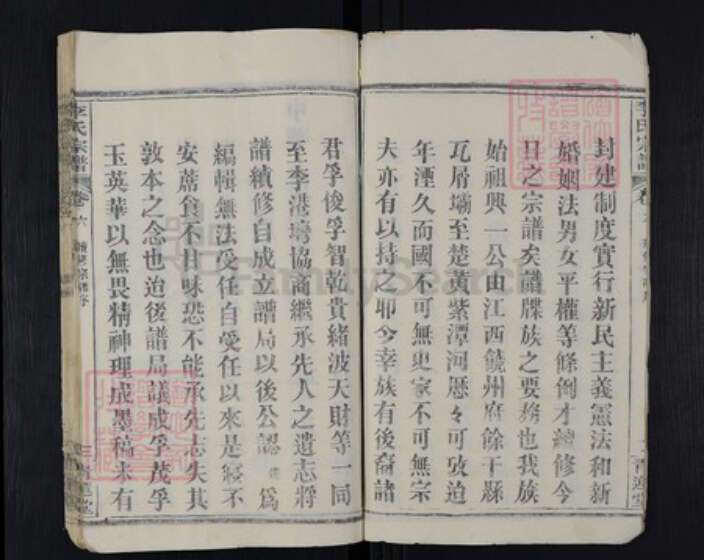 封建制度實行新民主義憲法和新
婚姻法男女平權等條倒才總修今
日之宗譜矣譜牒族之要務也我族
始祖興一公由江西饒州府餘干縣
瓦屑壩至楚黄紫潭河歷々可攷迨
年湮久而國不可無史家不可無宗
夫亦有以持之耶今幸族有後裔諸
李氏宗譜
君孚俊孚智乾貴緒波天財等一同
至李港塆協商繼承先人之遺志將
譜續修自成立譜局以後公認 為
編輯無法受任自受任以來是寢不
安蓆食不甘味恐不能承先志失其
敦本之念也迨後譜局議成孚茂孚
玉英華以無畏精神理成墨稿未有
李氏宗譜 卷六 續修宗譜序
FamilySearch